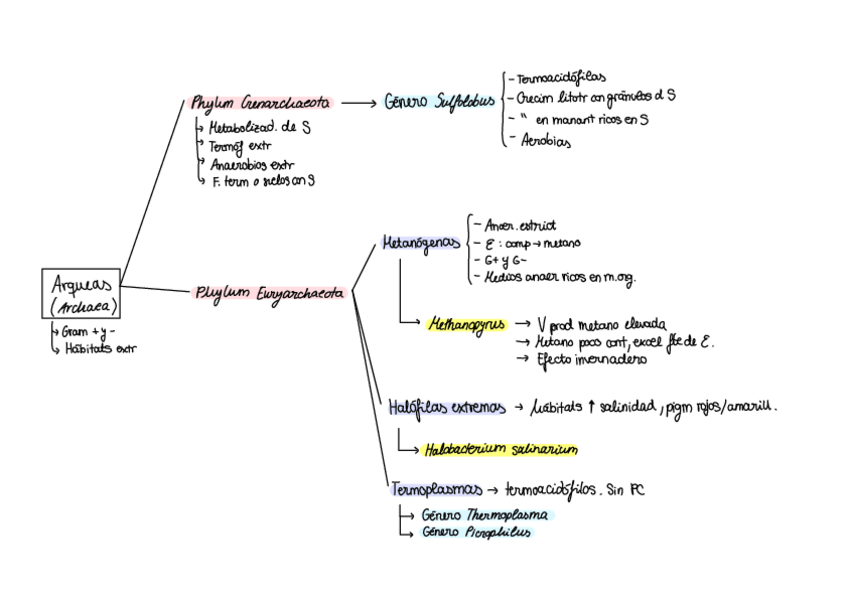 Arqueas
(Archaea)
Gram + y -
Hábitats extr
Phylum Crenarchaeota
Metabolizad. de S
Termóf extr
Anaerobios extr
F. term o suelos con S
Género Sulfolobus
- Termoacidófilas
- Crecim litotr con gránulos d S
- " en manant ricos en S
- Aerobias
Phylum Euryarchaeota
Metanógenas
- Anaer. estrict
- E : comp → metano
- G+ y G-
- Medios anaer ricos en m.org.
Methanopyrus
→ V prod metano elevada
→ Metano poco cont, excel fte de E.
→ Efecto invernadero
Halófilas extremas → hábitats ↑ salinidad, pigm rojos/amarill.
Halobacterium salinarium
Termoplasmas → termoacidófilos. Sin PC
Género Thermoplasma
Género Picrophilus